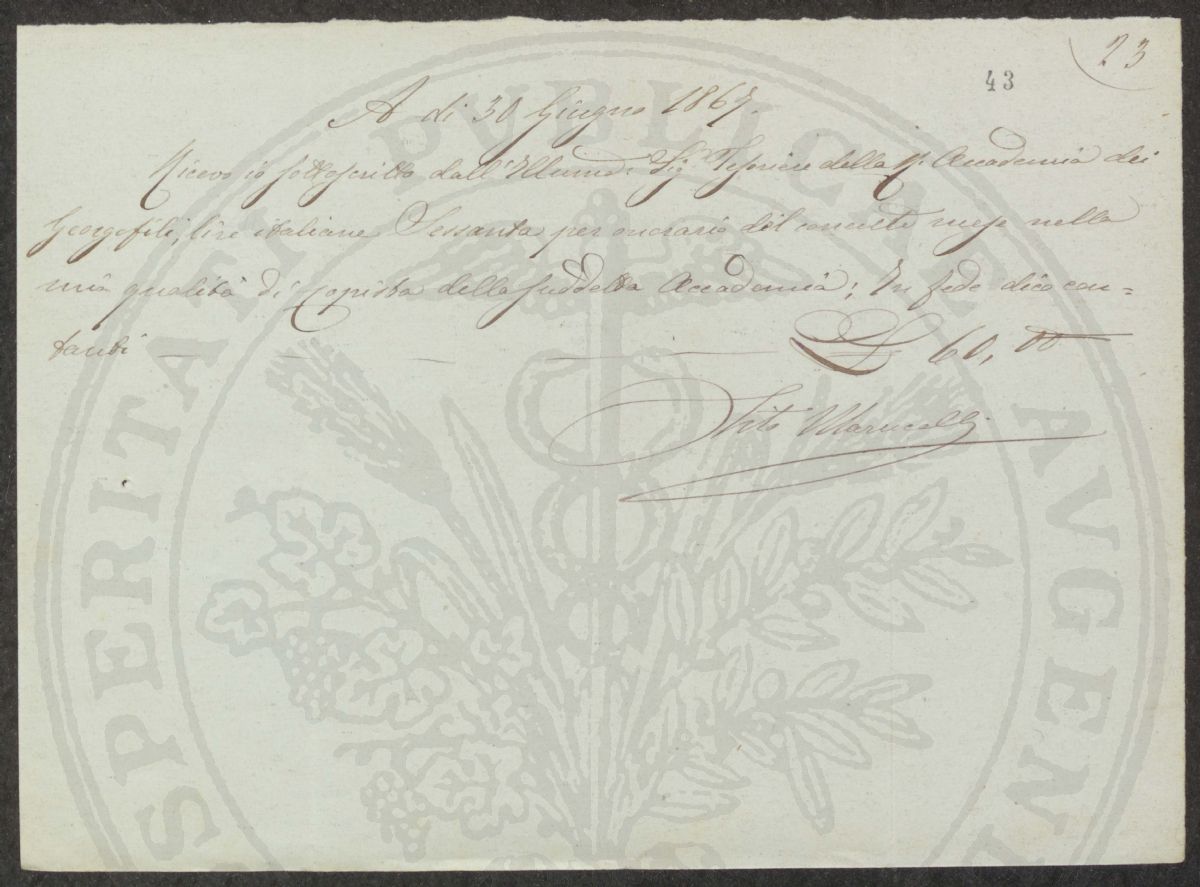 23
43
A dì 30 Giugno 1867.
Ricevo io sottoscritto dall'Illumo. Sigr. Tesoriere della R. Accademia dei
Georgofili, lire italiane Sessanta per onorario del corrente mese nella
mia qualità di Copista della suddetta Accademia; In fede dico con=
tanti — — — — — £ 60,00
Tito Marucelli
PUBLICAE
SPERITATI
AVGEN